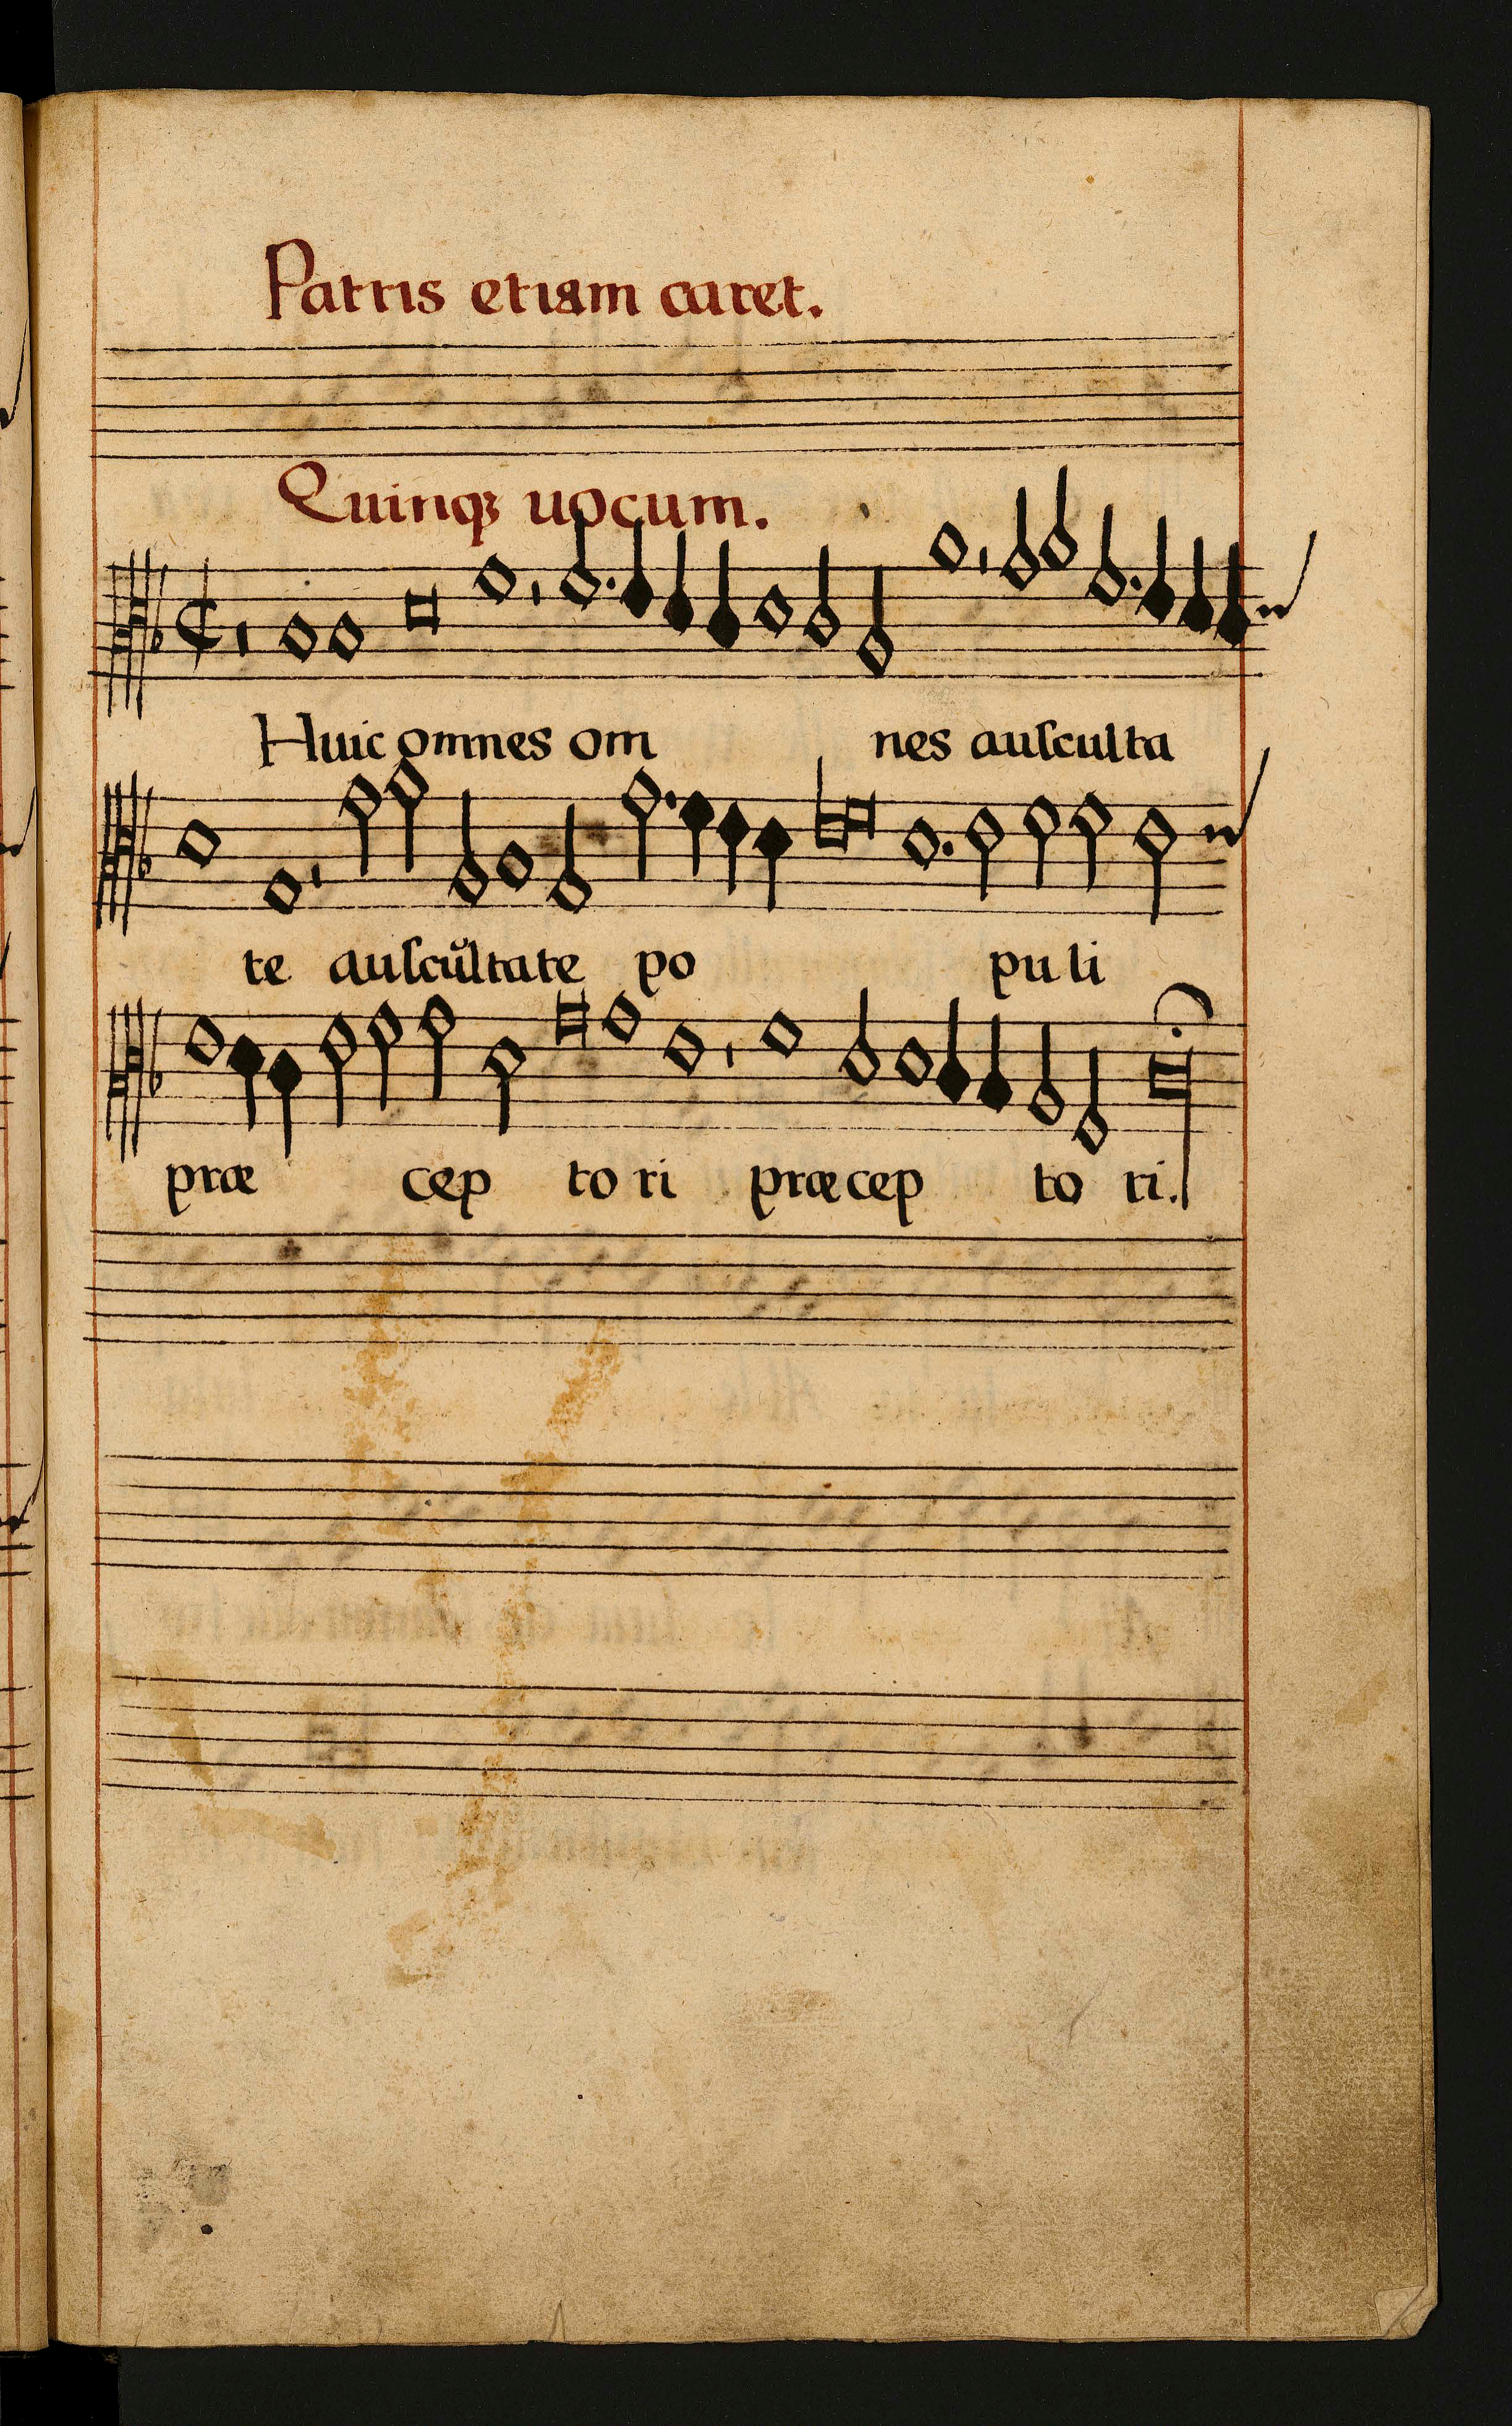 Patris etiam caret.
Quinqꝫ uocum.
Huic omnes om nes auſculta
te auſcůltate po pu li
præ cep to ri præcep to ri.